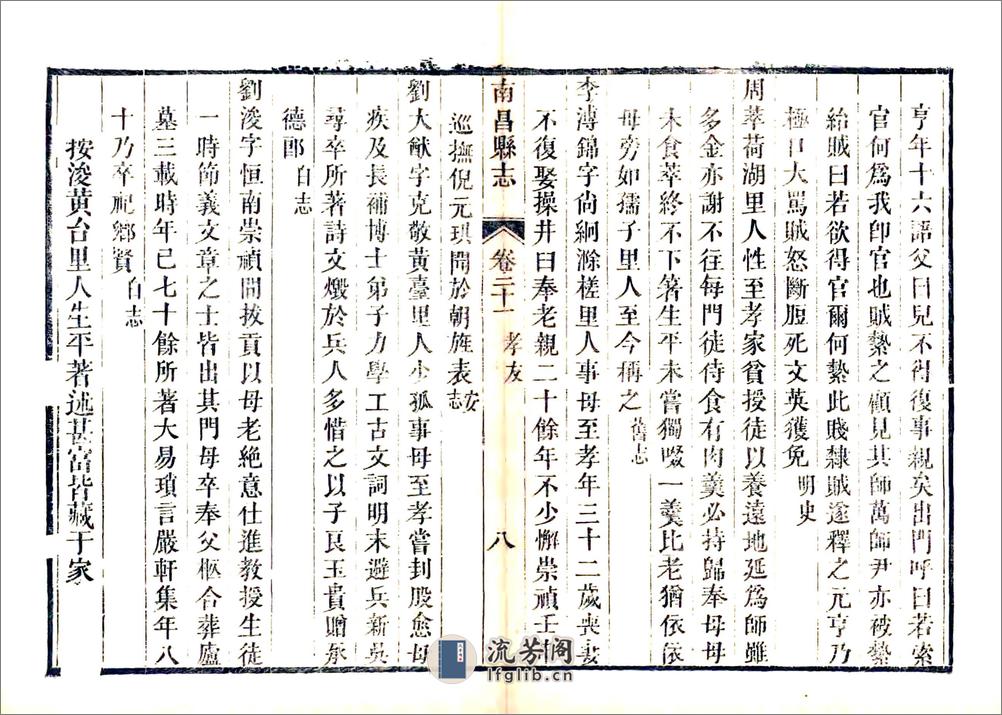 亨年十六語父曰兒不得復事親矣出門呼曰若索
官何為我卽官也賊縶之顧見其師萬師尹亦被縶
紿賊曰若欲得官爾何縶此賤隸賊遂釋之元亨乃
極口大罵賊怒斷脰死文英獲免明史
周萃荷湖里人性至孝家貧授徒以養遠地延爲師雖
多金亦謝不往每門徒侍食有肉羹必持歸奉母母
未食萃終不下箸生平未嘗獨啜一羹比老猶依依
母旁如孺子里人至今稱之舊志
李溥錦字尙絅滁槎里人事母至孝年三十二歲喪妻
不復娶操井臼奉老親二十餘年不少懈崇禎壬
南昌縣志 卷二十一 孝友 八
巡撫倪元珙聞於朝旌表安志
劉大猷字克敬黃臺里人少孤事母至孝嘗刲股愈母
疾及長補博士弟子力學工古文詞明末避兵新吳
尋卒所著詩文燬於兵人多惜之以子良玉貴贈承
德郎白志
劉浚字恒南崇禎間拔貢以母老絶意仕進敎授生徒
一時節義文章之士皆出其門母卒奉父柩合葬廬
墓三載時年已七十餘所著大易瑣言嚴軒集年八
十乃卒祀鄉賢白志
按浚黃台里人生平著述甚富皆藏于家
流芳阁
lfglib.cn